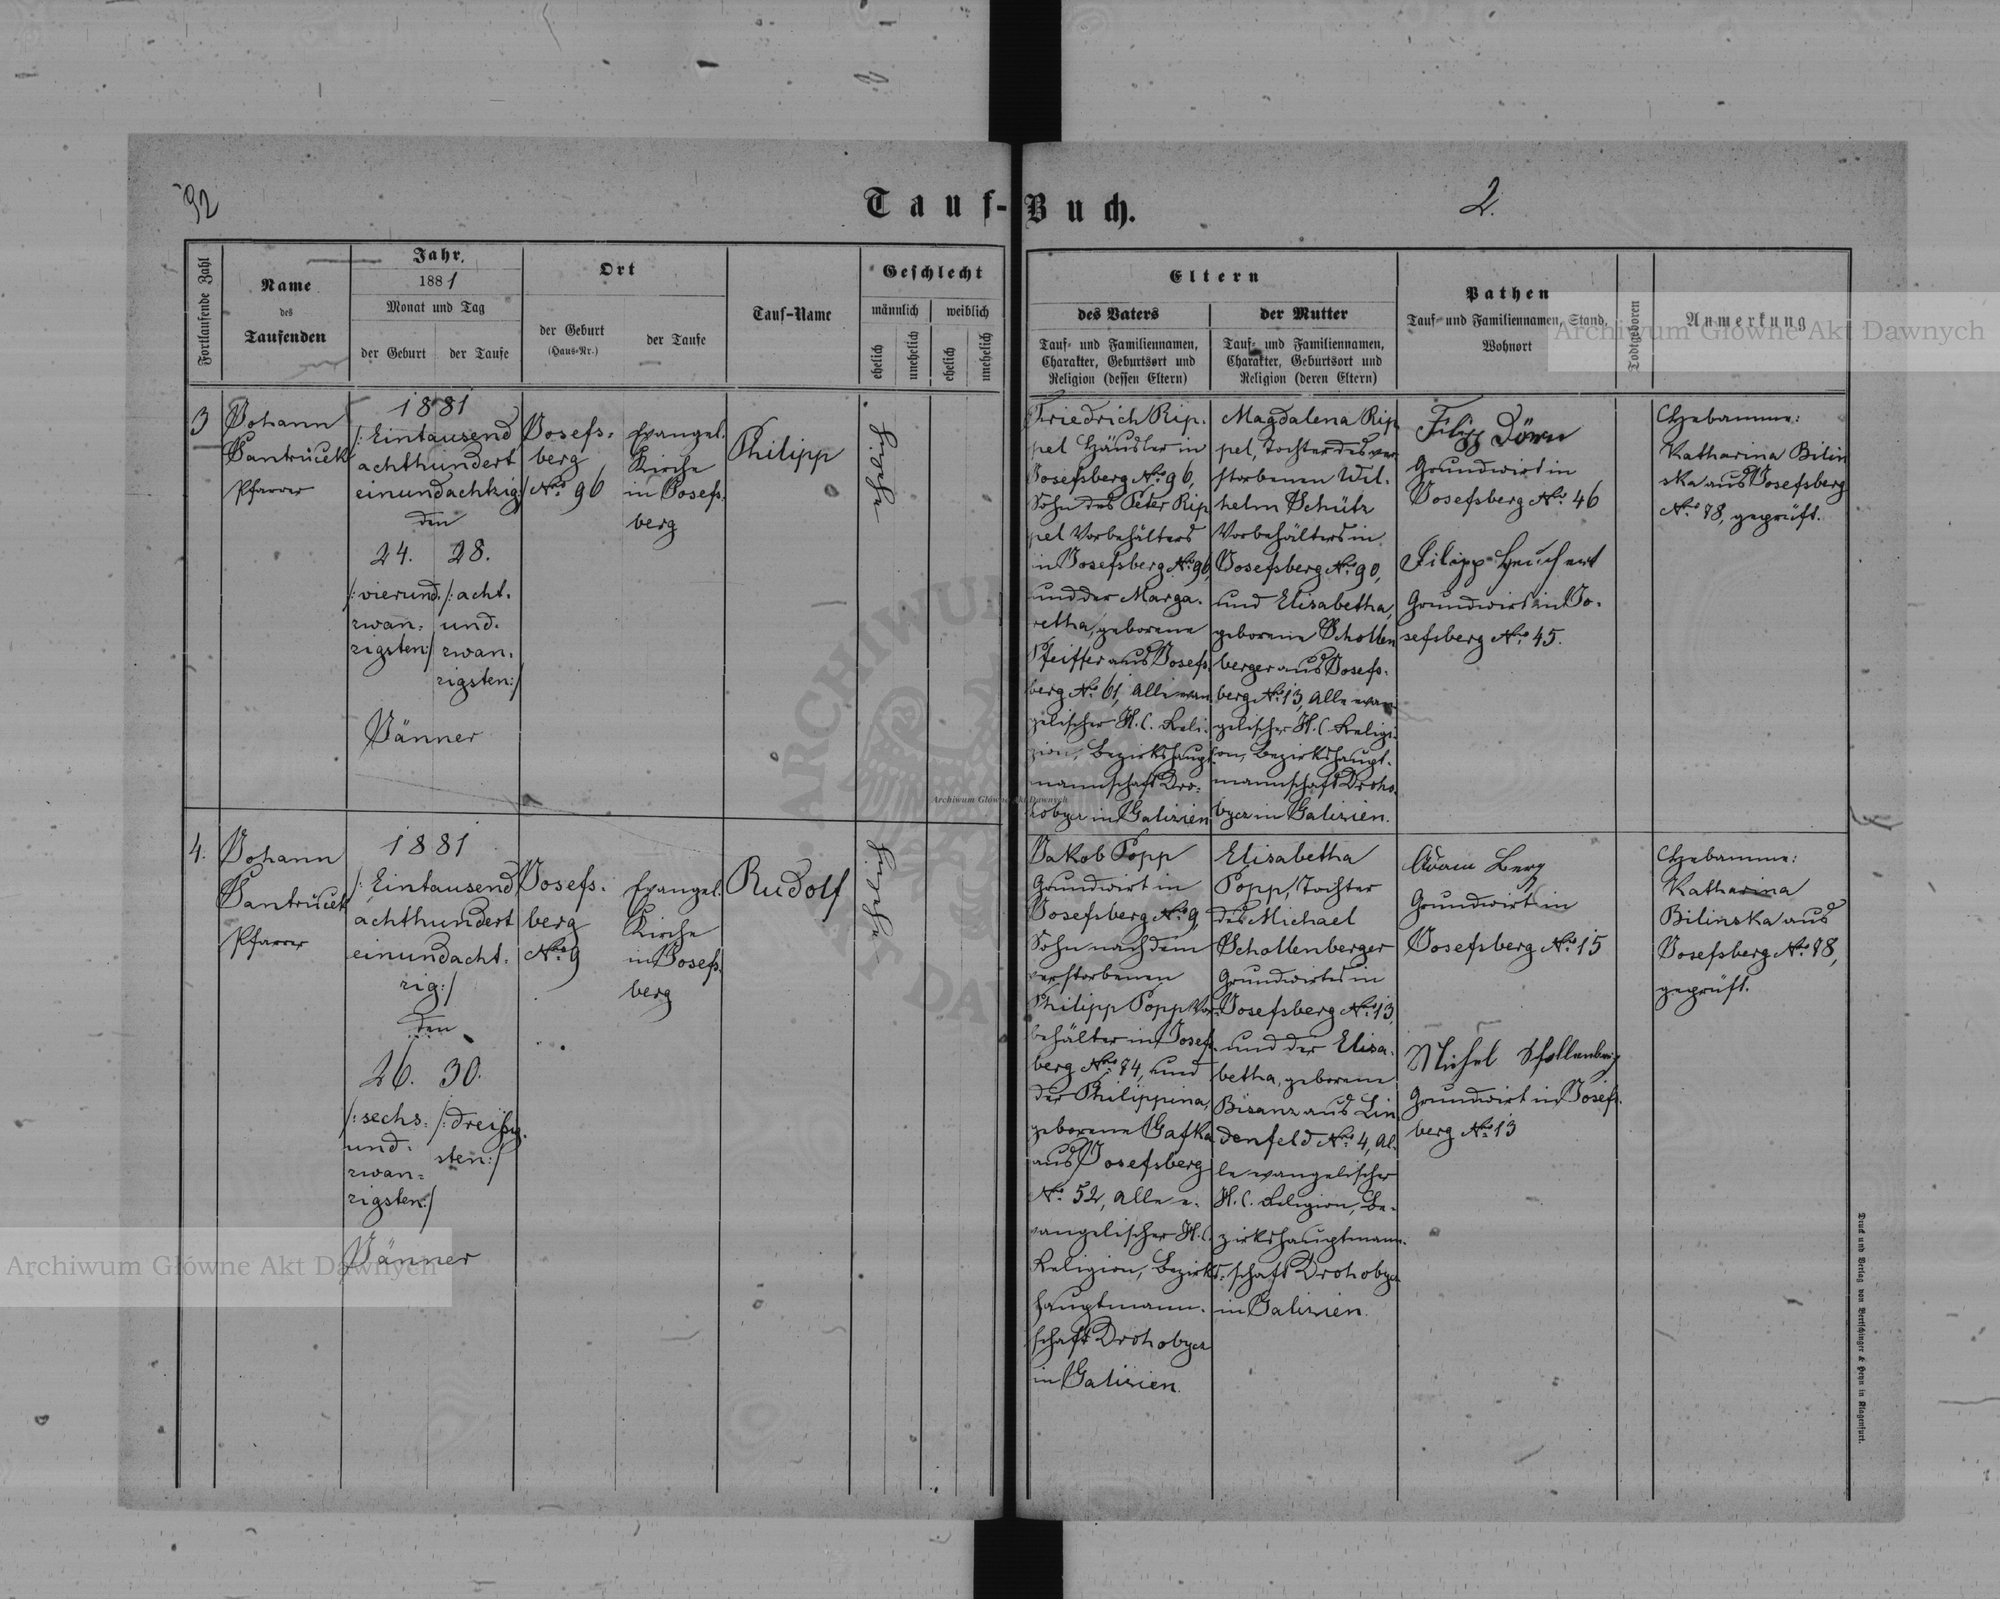 92
Tauf-Buch.
2.
Fortlaufende Zahl
Name
des
Taufenden
Jahr,
1881
Monat und Tag
der Geburt
der Taufe
Ort
der Geburt
(Haus-Nr.)
der Taufe
Tauf-Name
Geschlecht
männlich
weiblich
ehelich
unehelich
ehelich
unehelich
Eltern
des Vaters
Tauf- und Familiennamen,
Charakter, Geburtsort und
Religion (dessen Eltern)
der Mutter
Tauf- und Familiennamen,
Charakter, Geburtsort und
Religion (deren Eltern)
Pathen
Tauf- und Familiennamen, Stand,
Wohnort
Todtgeboren
Anmerkung
Archiwum Główne Akt Dawnych
3
Johann
Santrůček
Pfarrer
1881
/: Eintausend
achthundert
einundachtzig:/
den
24.
/:vierund.
zwan:
zigsten:/
28.
/:acht.
und.
zwan.
zigsten:/
Jänner
Josefs:
berg
No. 96
Evangel.
Kirche
in Josefs.
berg
Philipp
Friedrich Rip.
pel Häusler in
Josefsberg No. 96,
Sohn des Peter Rip
pel Vorbehälters
in Josefsberg No. 96,
und der Marga.
retha, geborene
Pfeiffer aus Josefs.
berg No. 61, Alle evan
gelischer H.C. Reli.
gion, Bezirkshaupt
mannschaft Dro:
hobycz in Galizien
Magdalena Rip
pel, Tochter des ver
storbenen Wil.
helm Schütz
Vorbehälters in
Josefsberg No. 90,
und Elisabetha,
geborene Schollen
berger aus Josefs.
berg No. 13, Alle evan
gelischer H.C. Religi.
on, Bezirkshaupt.
mannschaft Droho.
bycz in Galizien.
Filipp Dörn
Grundwirt in
Josefsberg No. 46
Filipp Heuchert
Grundwirt in Jo.
sefsberg No. 45.
Hebamme:
Katharina Bilin
ska aus Josefsberg
No. 78, geprüft.
Archiwum Główne Akt Dawnych
4.
Johann
Santrůček
Pfarrer
1881
/: Eintausend
achthundert
einundacht.
zig:/
den
26.
/:sechs:
und.
zwan:
zigsten:/
30.
/:dreißig.
sten:/
Jänner
Josefs.
berg
No. 9
Evangel.
Kirche
in Josefs.
berg
Rudolf
Jakob Popp
Grundwirt in
Josefsberg No. 9,
Sohn nach dem
verstorbenen
Philipp Popp Vor.
behälter in Josefs.
berg No. 74, und
der Philippina,
geborene Gafka
aus Josefsberg
No. 52, Alle e.
vangelischer H.C.
Religion, Bezirks.
hauptmann.
schaft Drohobycz
in Galizien.
Elisabetha
Popp, Tochter
des Michael
Schollenberger
Grundwirtes in
Josefsberg No. 13,
und der Elisa.
betha, geborene
Bisanz aus Lin
denfeld No. 4, Al.
le evangelischer
H.C. Religion, Be.
zirkshauptmann.
schaft Drohobycz
in Galizien.
Adam Berg
Grundwirt in
Josefsberg No. 15
Michel Schollenberg
Grundwirt in Josefs.
berg No. 13
Hebamme:
Katharina
Bilinska aus
Josefsberg No. 78,
geprüft.
Archiwum Główne Akt Dawnych
Druck und Verlag von Bertschinger & Heyn in Klagenfurt.